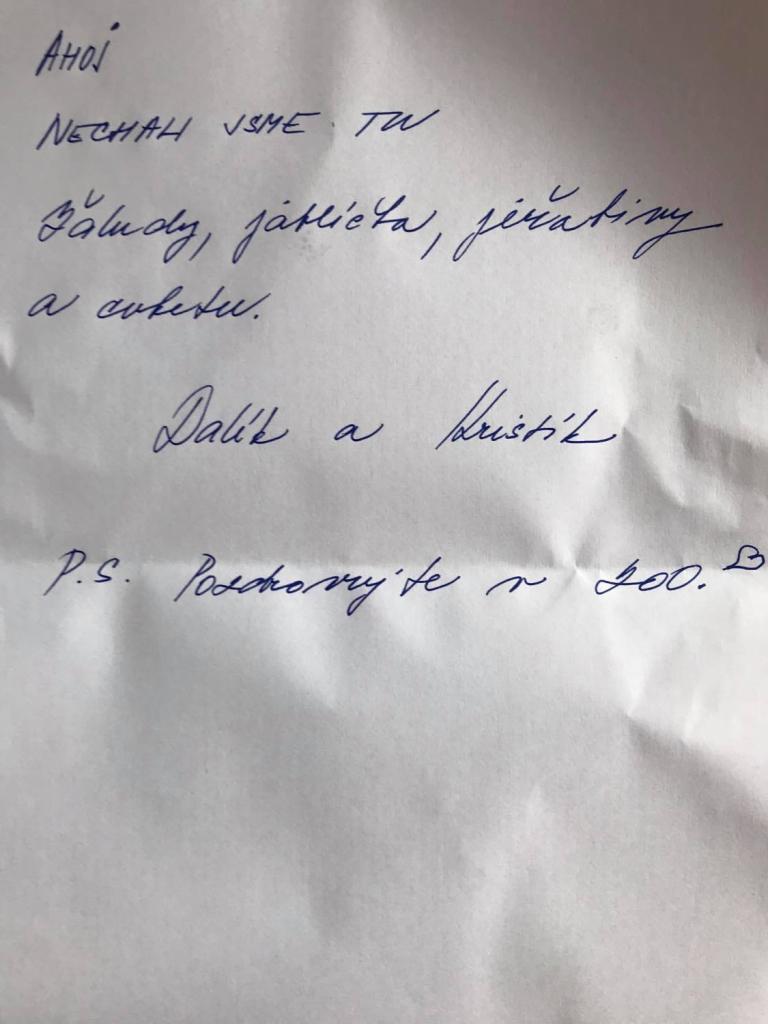 AHOJ
NECHALI JSME TU
Žaludy, jablíčka, jeřabiny
a cuketu.
Dalík a Kristík
P.S. Pozdravujte v ZOO.